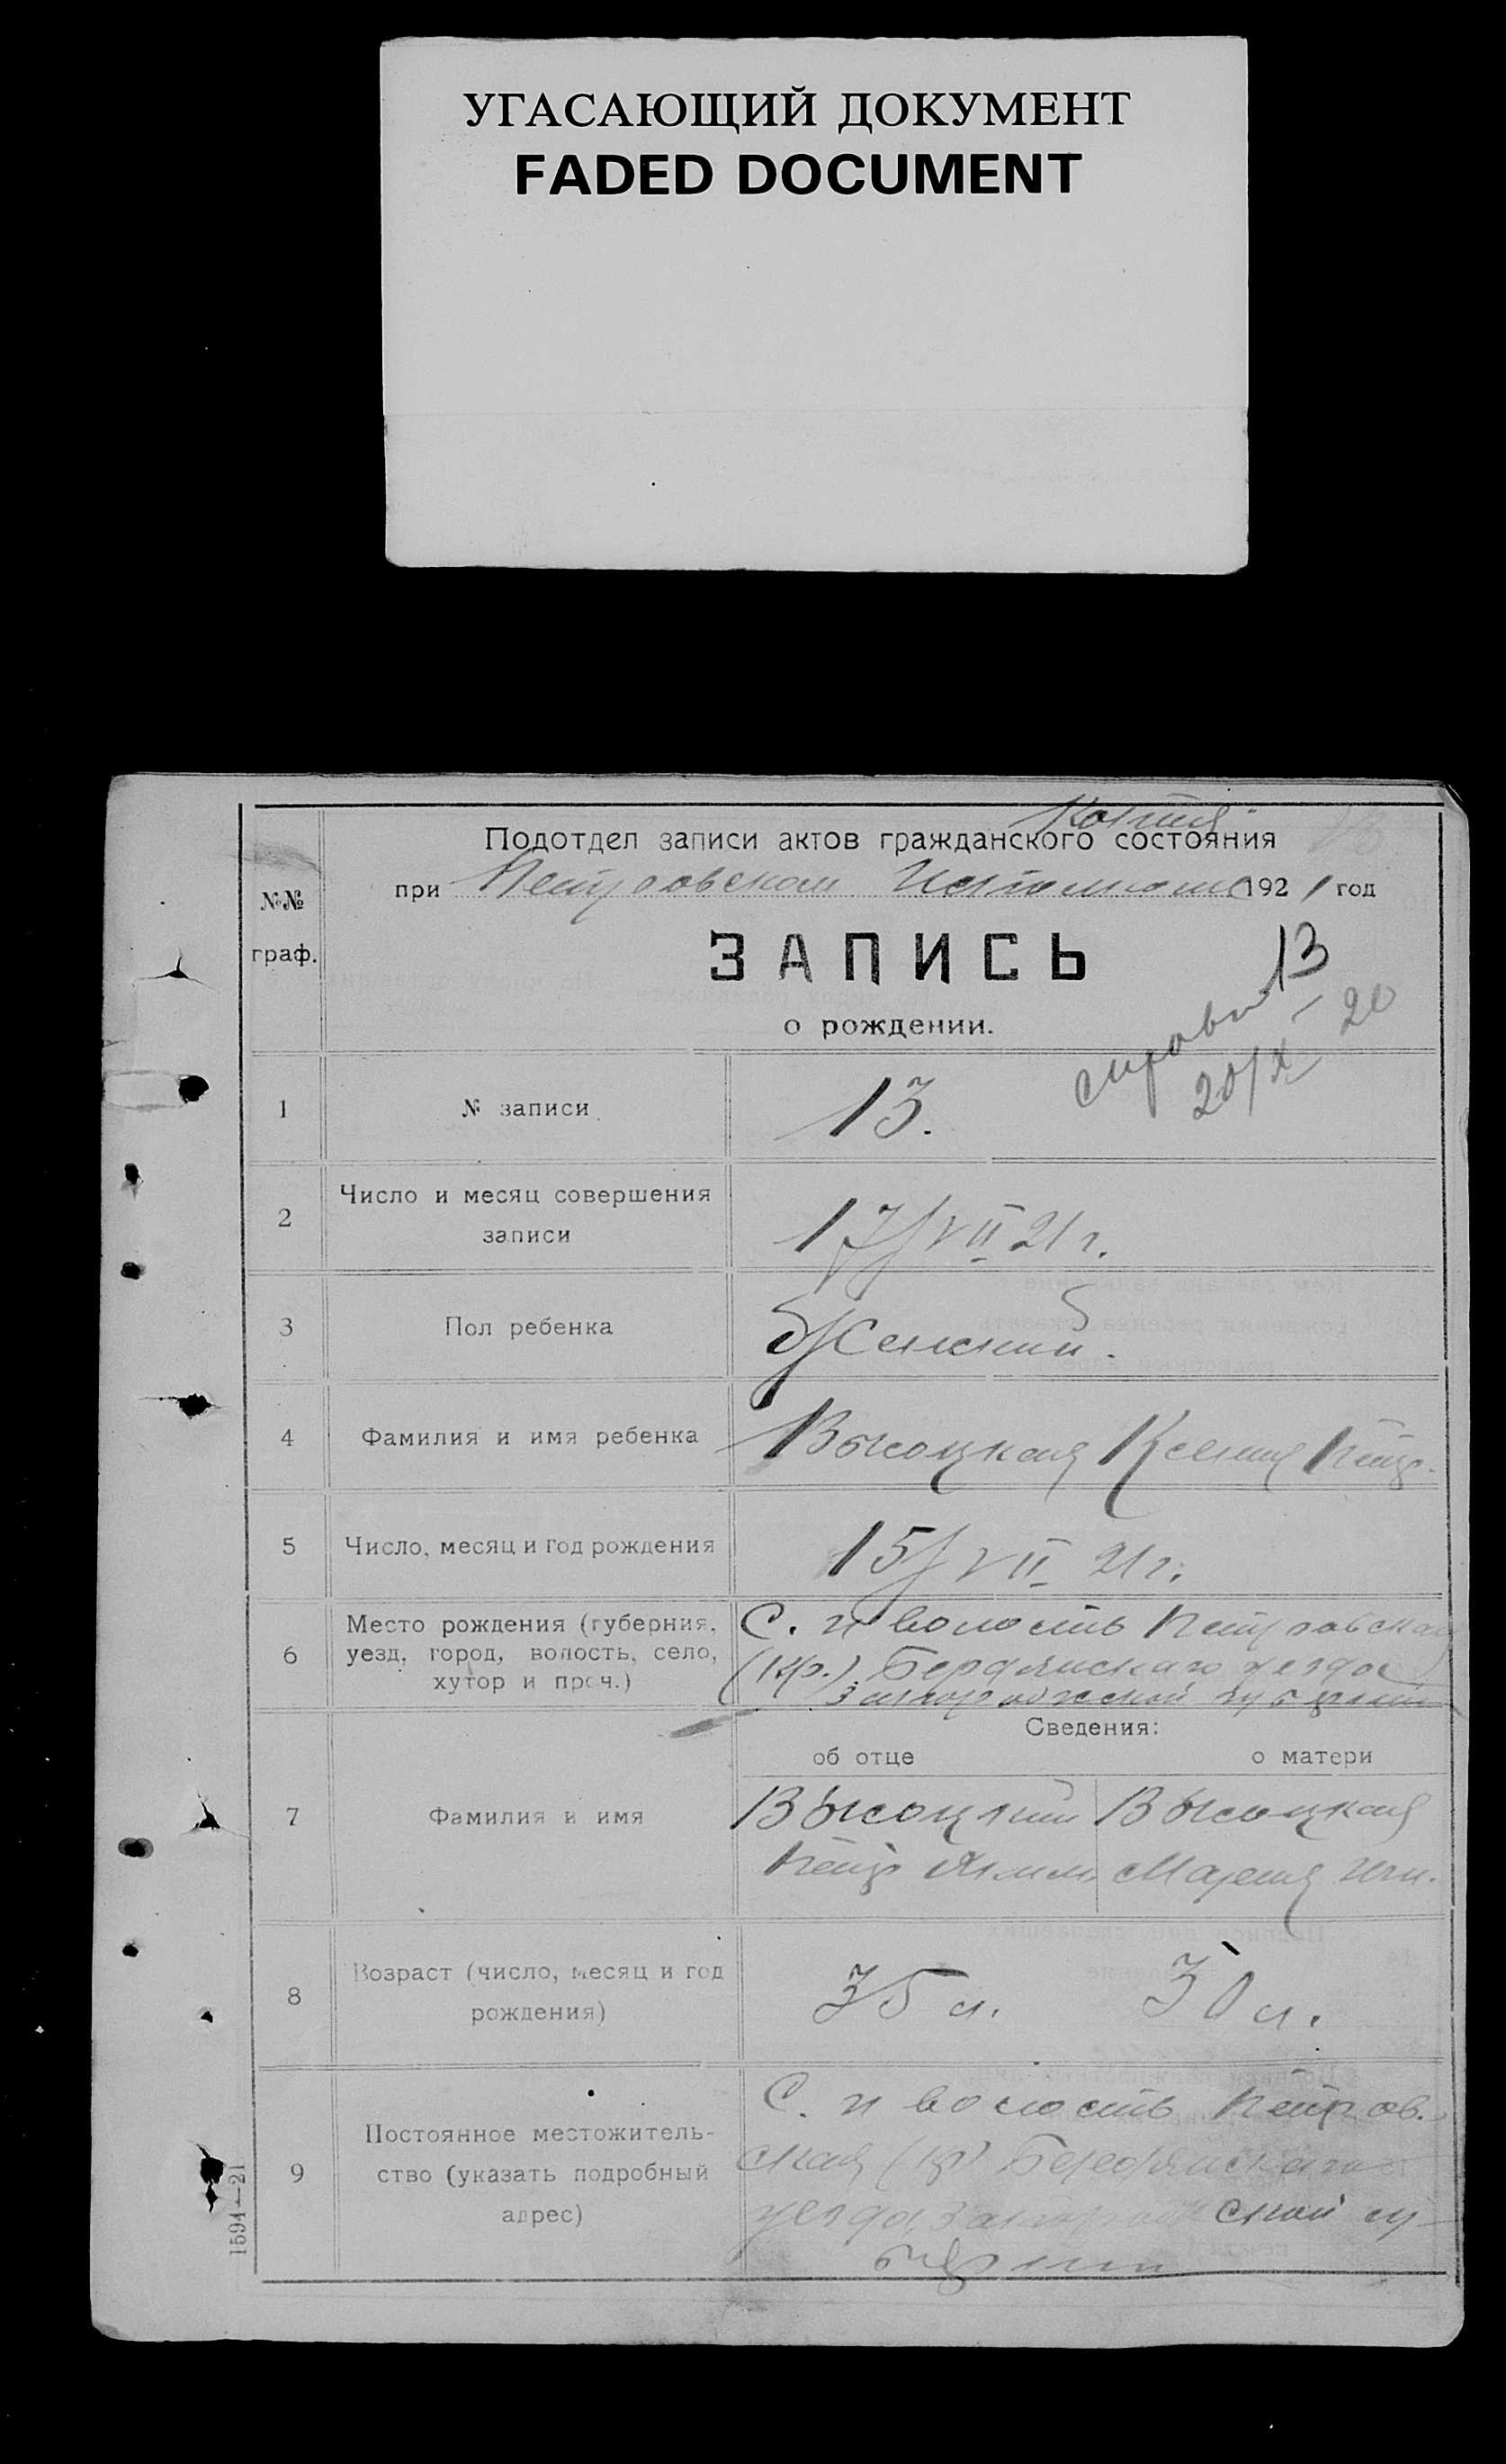 УГАСАЮЩИЙ ДОКУМЕНТ
FADED DOCUMENT
Копия
Подотдел записи актов гражданского состояния
при Петровском Исполкоме 1921 год
№№ граф.
ЗАПИСЬ
о рождении.
13
20
20/X
1 № записи 13.
2 Число и месяц совершения записи 17/VII 21 г.
3 Пол ребенка Женский.
4 Фамилия и имя ребенка Высоцкая Ксения Петр.
5 Число, месяц и год рождения 15/VII 21 г.
6 Место рождения (губерния, уезд, город, волость, село, хутор и проч.)
С. и волость Петровская
(Кр.) Бердянскаго уезда
Запорожской губернии
Сведения:
об отце о матери
7 Фамилия и имя
Высоцкий Высоцкая
Петр Мария
8 Возраст (число, месяц и год рождения) 35 л. 30 л.
9 Постоянное местожительство (указать подробный адрес)
С. и волость Петров-
ская (кр) Бердянскаго
уезда Запорожской гу-
бернии
1594—21